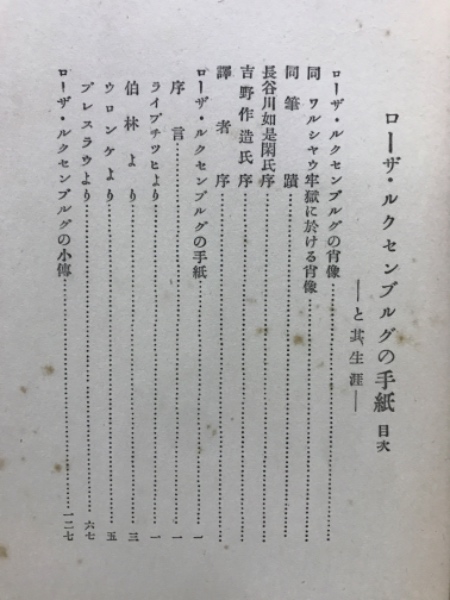 ローザ・ルクセンブルグの手紙 目次
――と其生涯――
ローザ・ルクセンブルグの肖像
同 ワルシャウ牢獄に於ける肖像
同筆蹟
長谷川如是閑氏序
吉野作造氏序
譯者序
ローザ・ルクセンブルグの手紙 一
序言 一
ライプチツヒより 一
伯林より 三
ウロンケより 五
ブレスラウより 六七
ローザ・ルクセンブルグの小傳 一二七